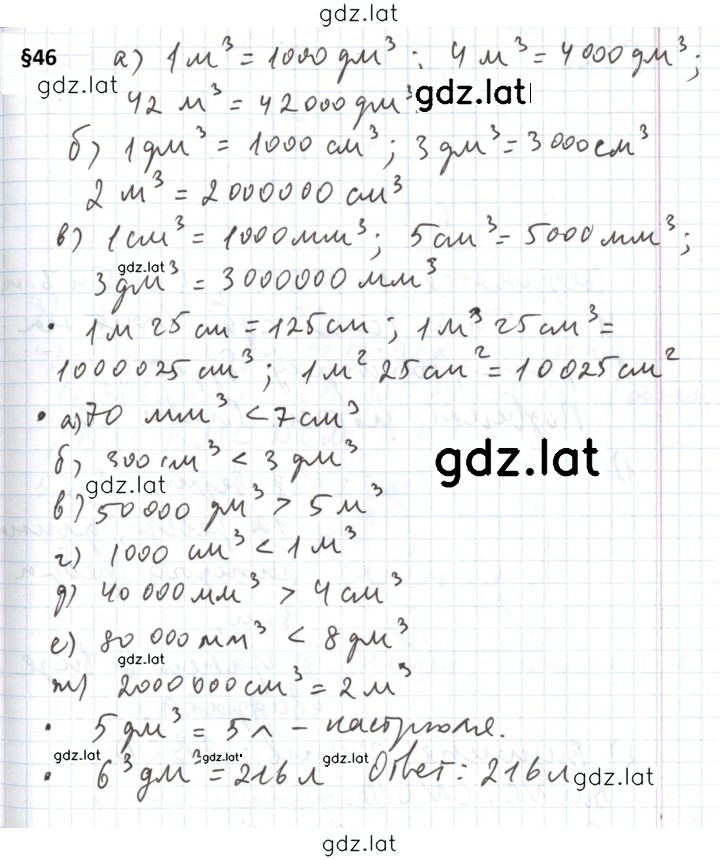 gdz.lat
§46 а) 1 м³ = 1000 дм³ ; 4 м³ = 4000 дм³ ;
gdz.lat
42 м³ = 42000 дм³ gdz.lat
б) 1 дм³ = 1000 см³ ; 3 дм³ = 3000 см³
2 м³ = 2000000 см³
в) 1 см³ = 1000 мм³ ; 5 см³ = 5000 мм³ ;
gdz.lat
3 дм³ = 3000000 мм³
• 1 м 25 см = 125 см ; 1 м³ 25 см³ =
1000025 см³ ; 1 м² 25 см² = 10025 см²
• а) 70 мм³ < 7 см³
б) 300 см³ < 3 дм³ gdz.lat
gdz.lat
в) 50000 дм³ > 5 м³
г) 1000 см³ < 1 м³
д) 40 000 мм³ > 4 см³
е) 80 000 мм³ < 8 дм³
gdz.lat
ж) 2000 000 см³ = 2 м³
• 5 дм³ = 5 л – кастрюля.
gdz.lat gdz.lat gdz.lat
• 6³ дм³ = 216 л Ответ: 216 л gdz.lat
gdz.lat